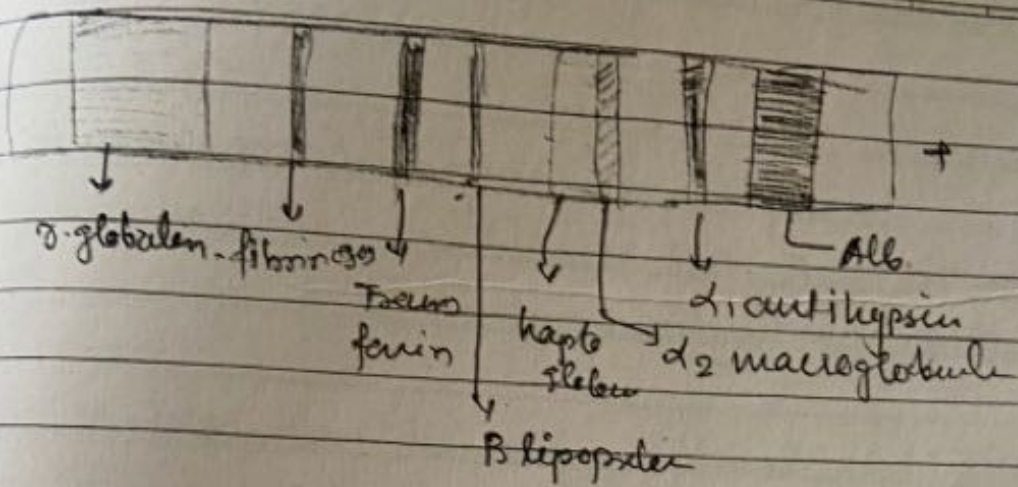 +
γ-globulen
fibrinogo
Alb.
Trans
ferrin
hapto
globu
α1 antitrypsin
α2 macroglobuli
B lipoprotei